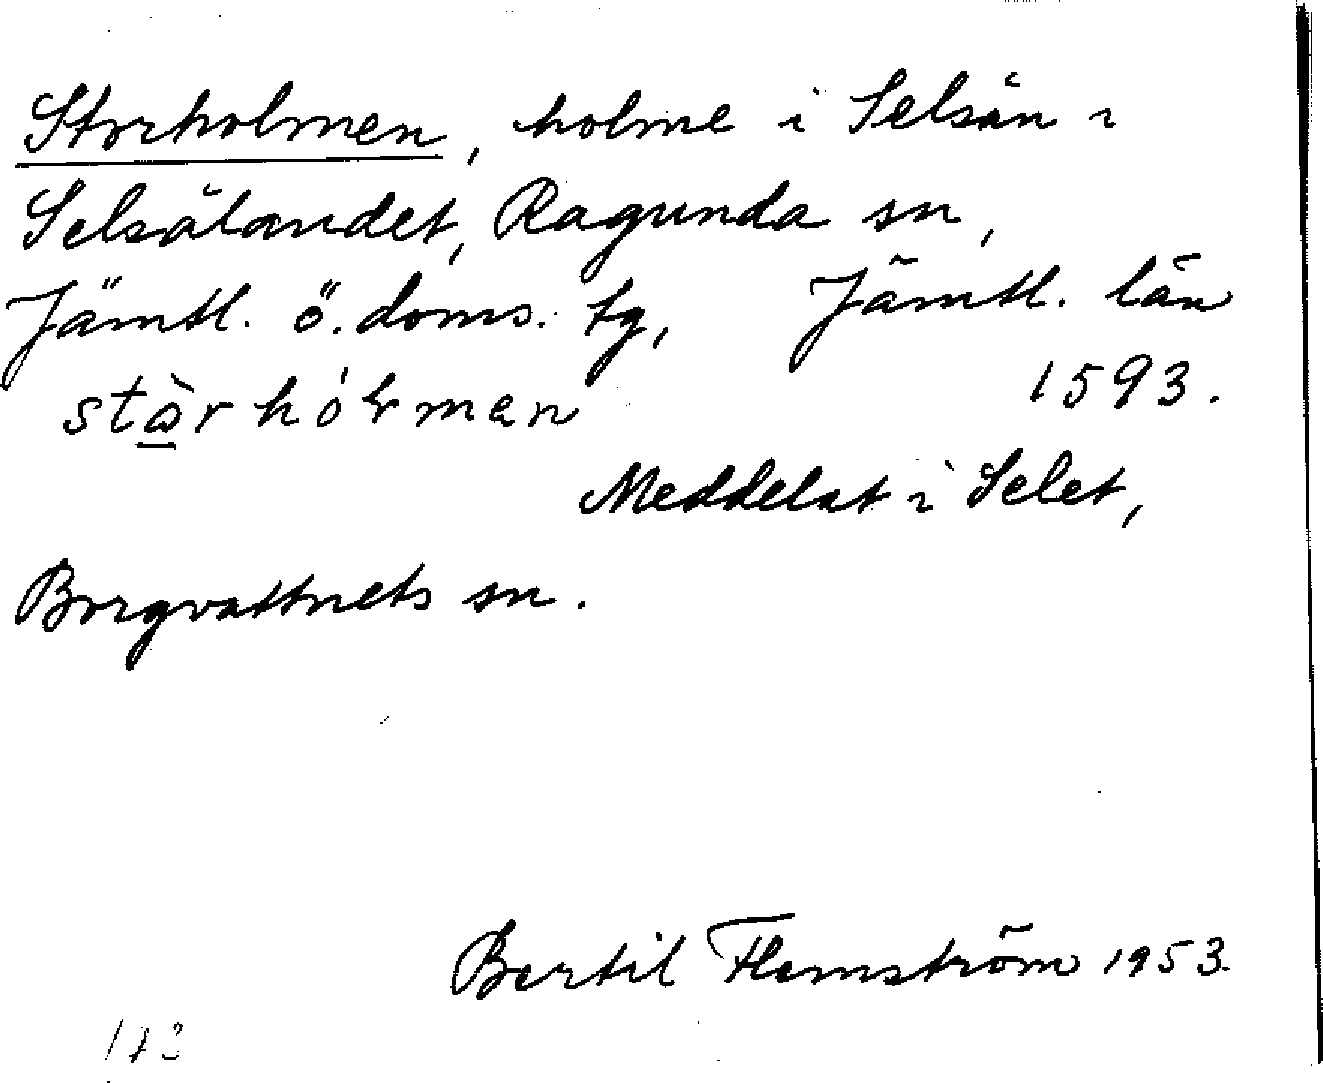 Storholmen, holme i Selsån i
Selsålandet, Ragunda sn,
Jämtl. ö. doms. tg, Jämtl. län
1593.
Meddelat i Selet,
Borgvattnets sn.
Bertil Flemström 1953.